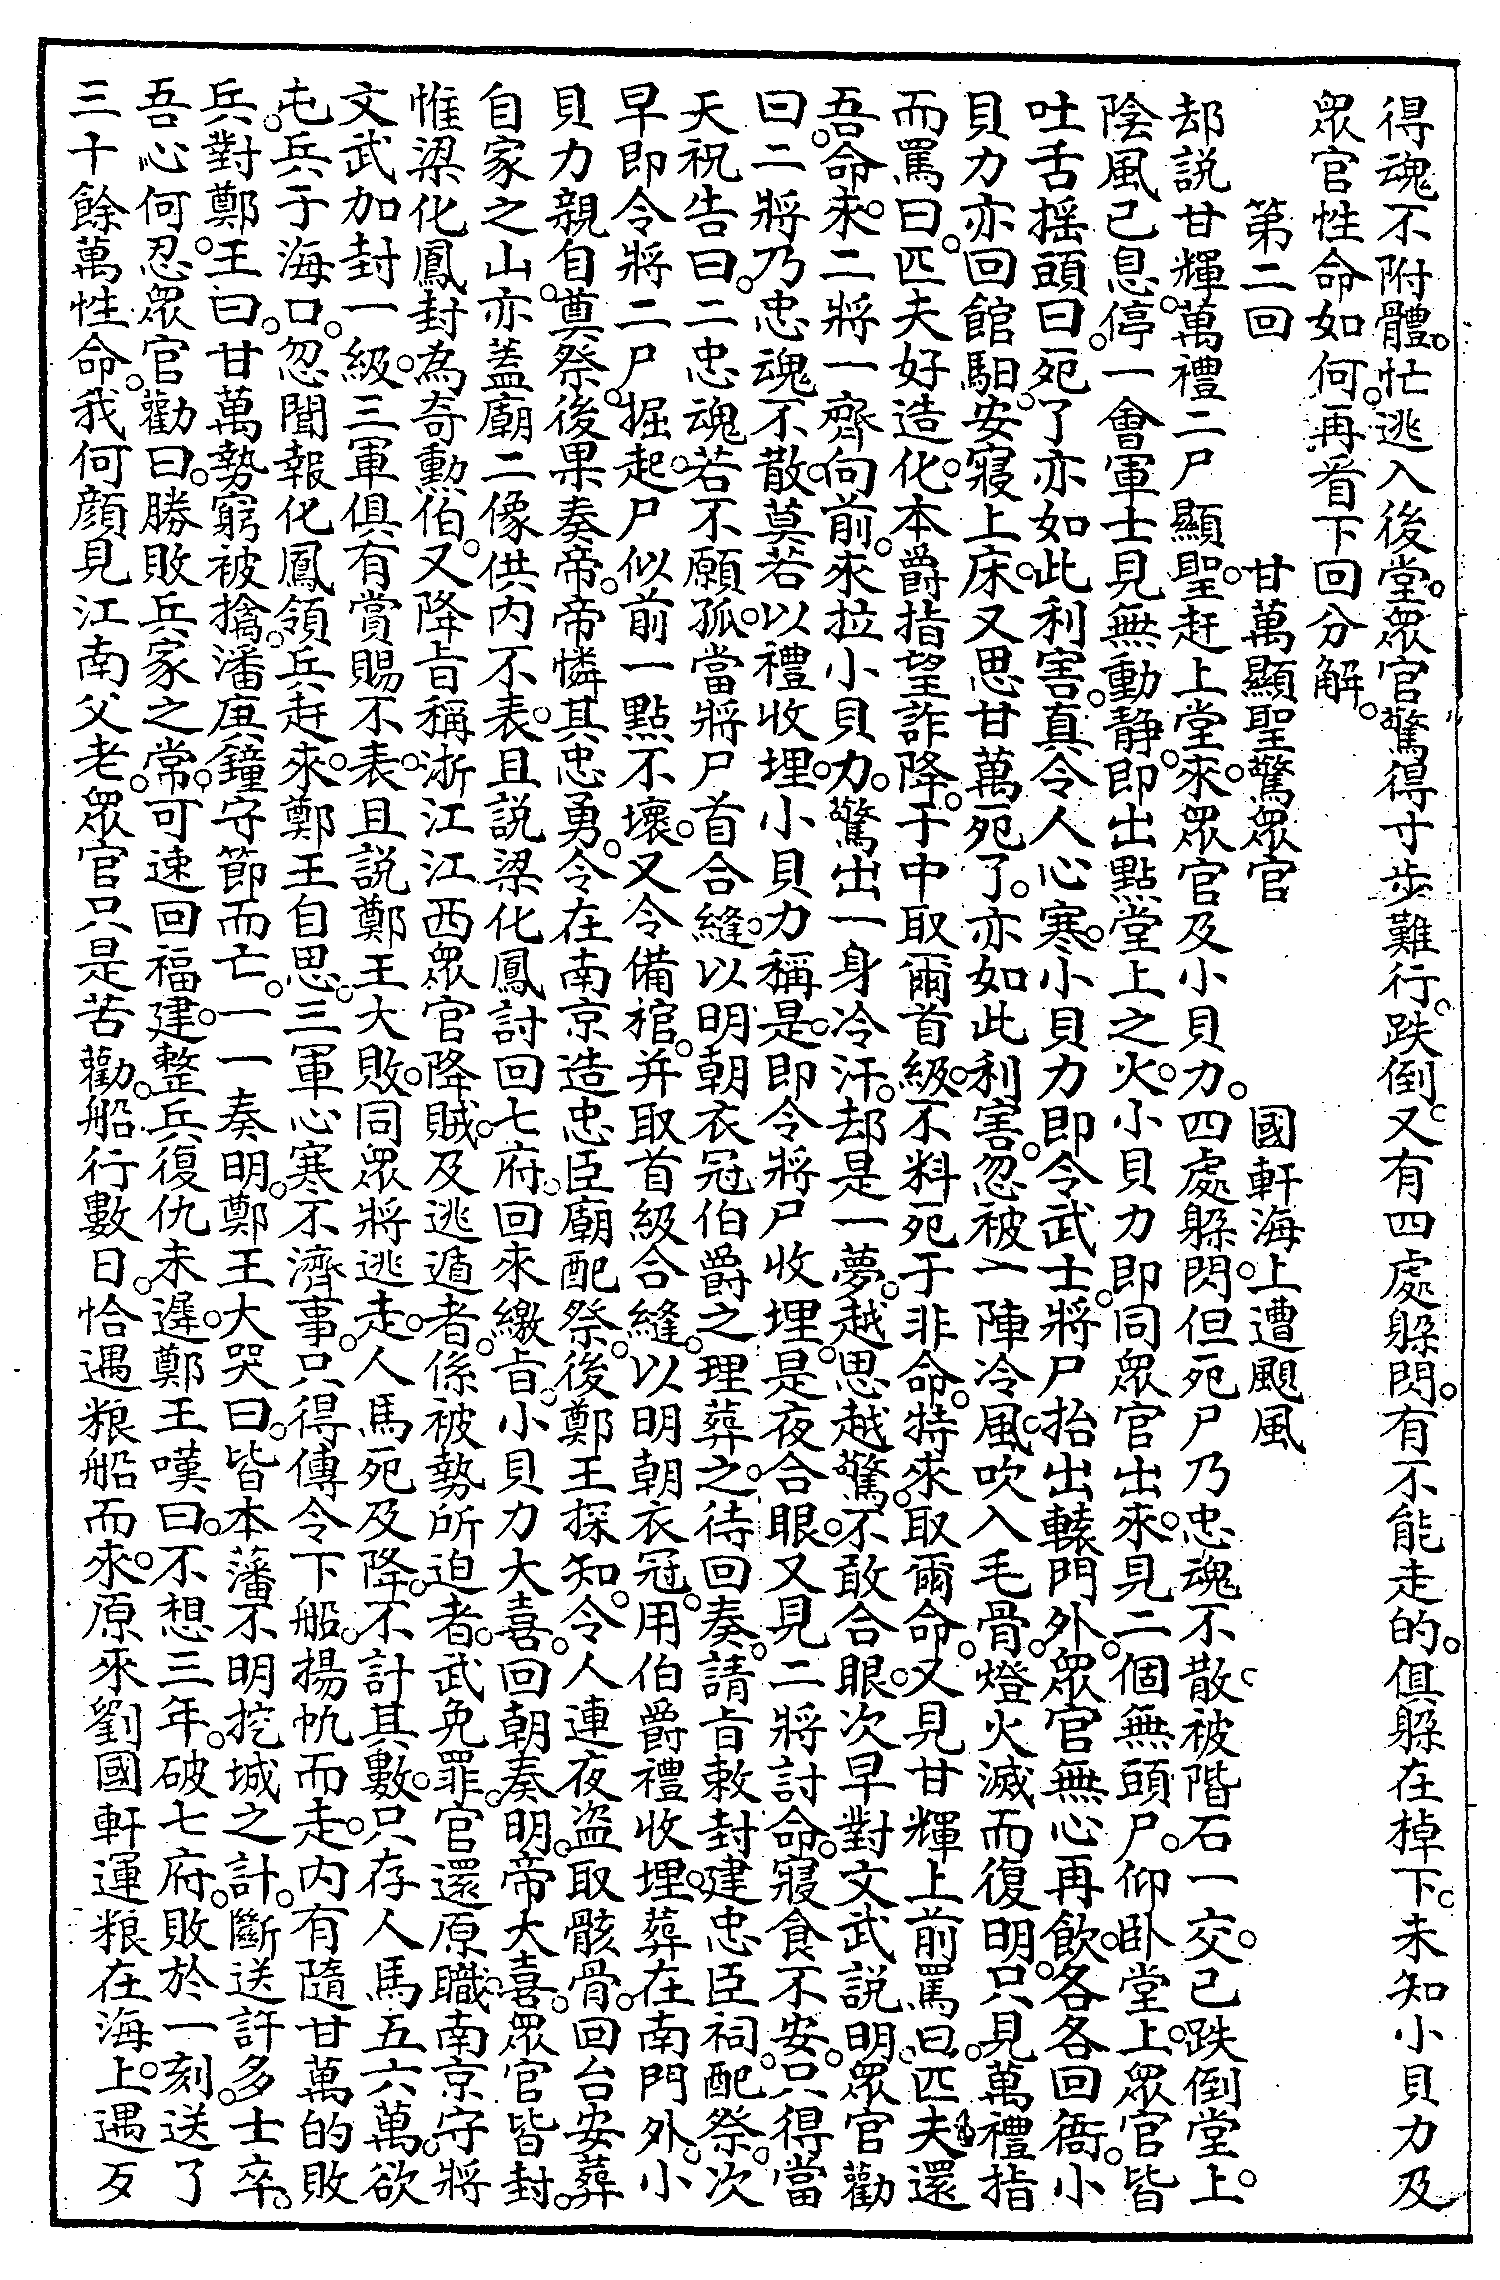 得魂不附體。忙逃入後堂。眾官驚得寸步難行。跌倒。又有四處躲閃。有不能走的。俱躲在棹下。未知小貝力及
眾官性命如何。再看下回分解。
第二回　甘萬顯聖驚眾官　國軒海上遭颶風
却説甘輝萬禮二尸顯聖。赶上堂來。眾官及小貝力。四處躲閃。但死尸乃忠魂不散。被階石一交。已跌倒堂上。
陰風已息。停一會軍士見無動静。即出點堂上之火。小貝力即同眾官出來。見二個無頭尸。仰卧堂上。眾官皆
吐舌摇頭曰。死了亦如此利害。真令人心寒。小貝力即令武士。將尸抬出轅門外。眾官無心再飲。各各回衙。小
貝力亦回館馹。安寢上床。又思甘萬死了。亦如此利害。忽被一陣冷風吹入毛骨。燈火滅而復明。只見萬禮指
而罵曰。匹夫好造化。本爵指望詐降。于中取爾首級。不料死于非命。特來取爾命。又見甘輝上前罵曰。匹夫還
吾命來。二將一齊向前。來拉小貝力。驚出一身冷汗。却是一夢。越思越驚。不敢合眼。次早對文武説明。眾官勸
曰。二將乃忠魂不散。莫若以禮收埋。小貝力稱是。即令將尸收埋。是夜合眼。又見二將討命。寢食不安。只得當
天祝告曰。二忠魂若不願孤。當將尸首合縫。以明朝衣冠伯爵之理葬之。待回奏。請旨敕封。建忠臣祠。配祭。次
早即令將二尸掘起。尸似前一點不壞。又令備棺。并取首級合縫。以明朝衣冠。用伯爵禮收埋。葬在南門外。小
貝力親自奠祭。後果奏帝。帝憐其忠勇。令在南京造忠臣廟配祭。後鄭王探知。令人連夜盜取骸骨。回台安葬
自家之山。亦蓋廟二像供内不表。且説梁化鳳討回七府。回來繳旨。小貝力大喜。回朝奏明。帝大喜。眾官皆封。
惟梁化鳳封為奇勳伯。又降旨稱浙江江西眾官降賊。及逃遁者。係被勢所迫者。武免罪。官還原職。南京守將
文武加封一級。三軍俱有賞賜不表。且説鄭王大敗。同眾將逃走。人馬死及降。不計其數。只存人馬五六萬。欲
屯兵于海口。忽聞報化鳳領兵赶來。鄭王自思。三軍心寒不濟事。只得傳令下船。揚帆而走。内有隨甘萬的敗
兵。對鄭王曰。甘萬勢窮被擒。潘庚鐘守節而亡。一一奏明。鄭王大哭曰。皆本藩不明挖城之計。斷送許多士卒。
吾心何忍。眾官勸曰。勝敗兵家之常。可速回福建。整兵復仇未遲。鄭王嘆曰。不想三年。破七府。敗於一刻。送了
三十餘萬性命。我何顔見江南父老。眾官只是苦勸。船行數日。恰遇粮船而來。原來劉國軒運粮在海上。遇歹